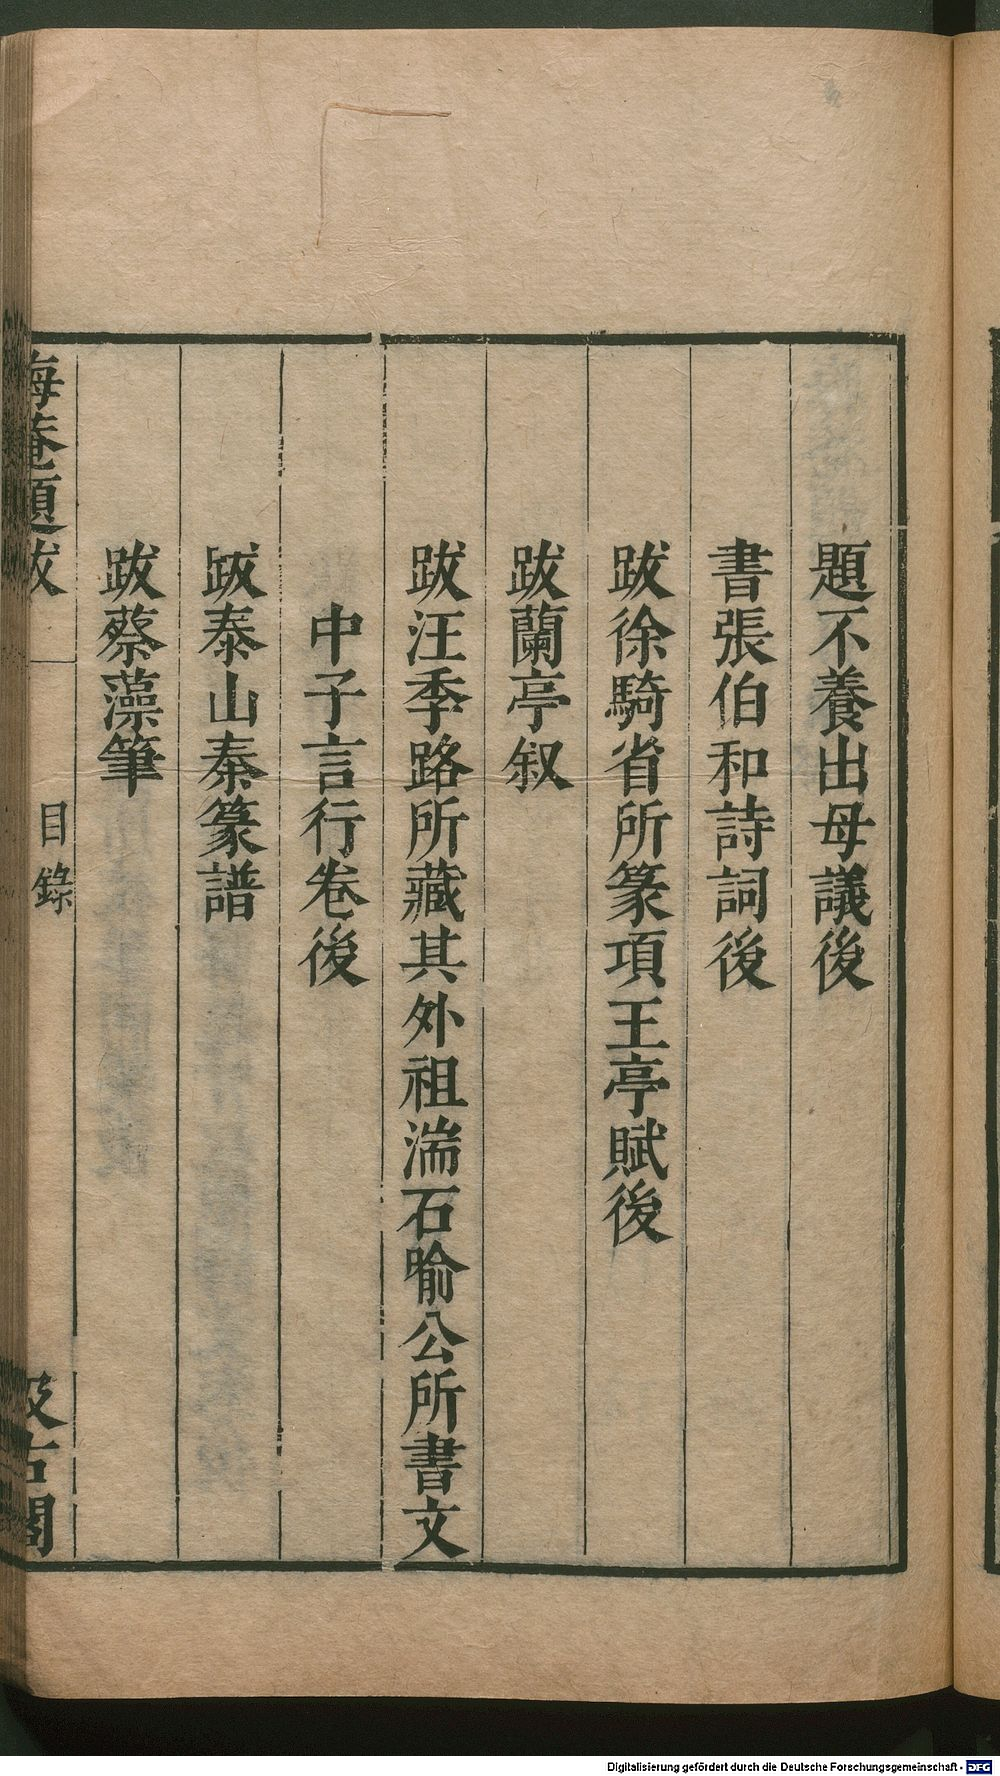 題不養出母議後
書張伯和詩詞後
跋徐騎省所篆項王亭賦後
跋蘭亭叙
跋汪季路所藏其外祖湍石喻公所書文
中子言行卷後
跋泰山秦篆譜
跋蔡藻筆
晦菴題跋
目錄
汲古閣
Digitalisierung gefördert durch die Deutsche Forschungsgemeinschaft - DFG